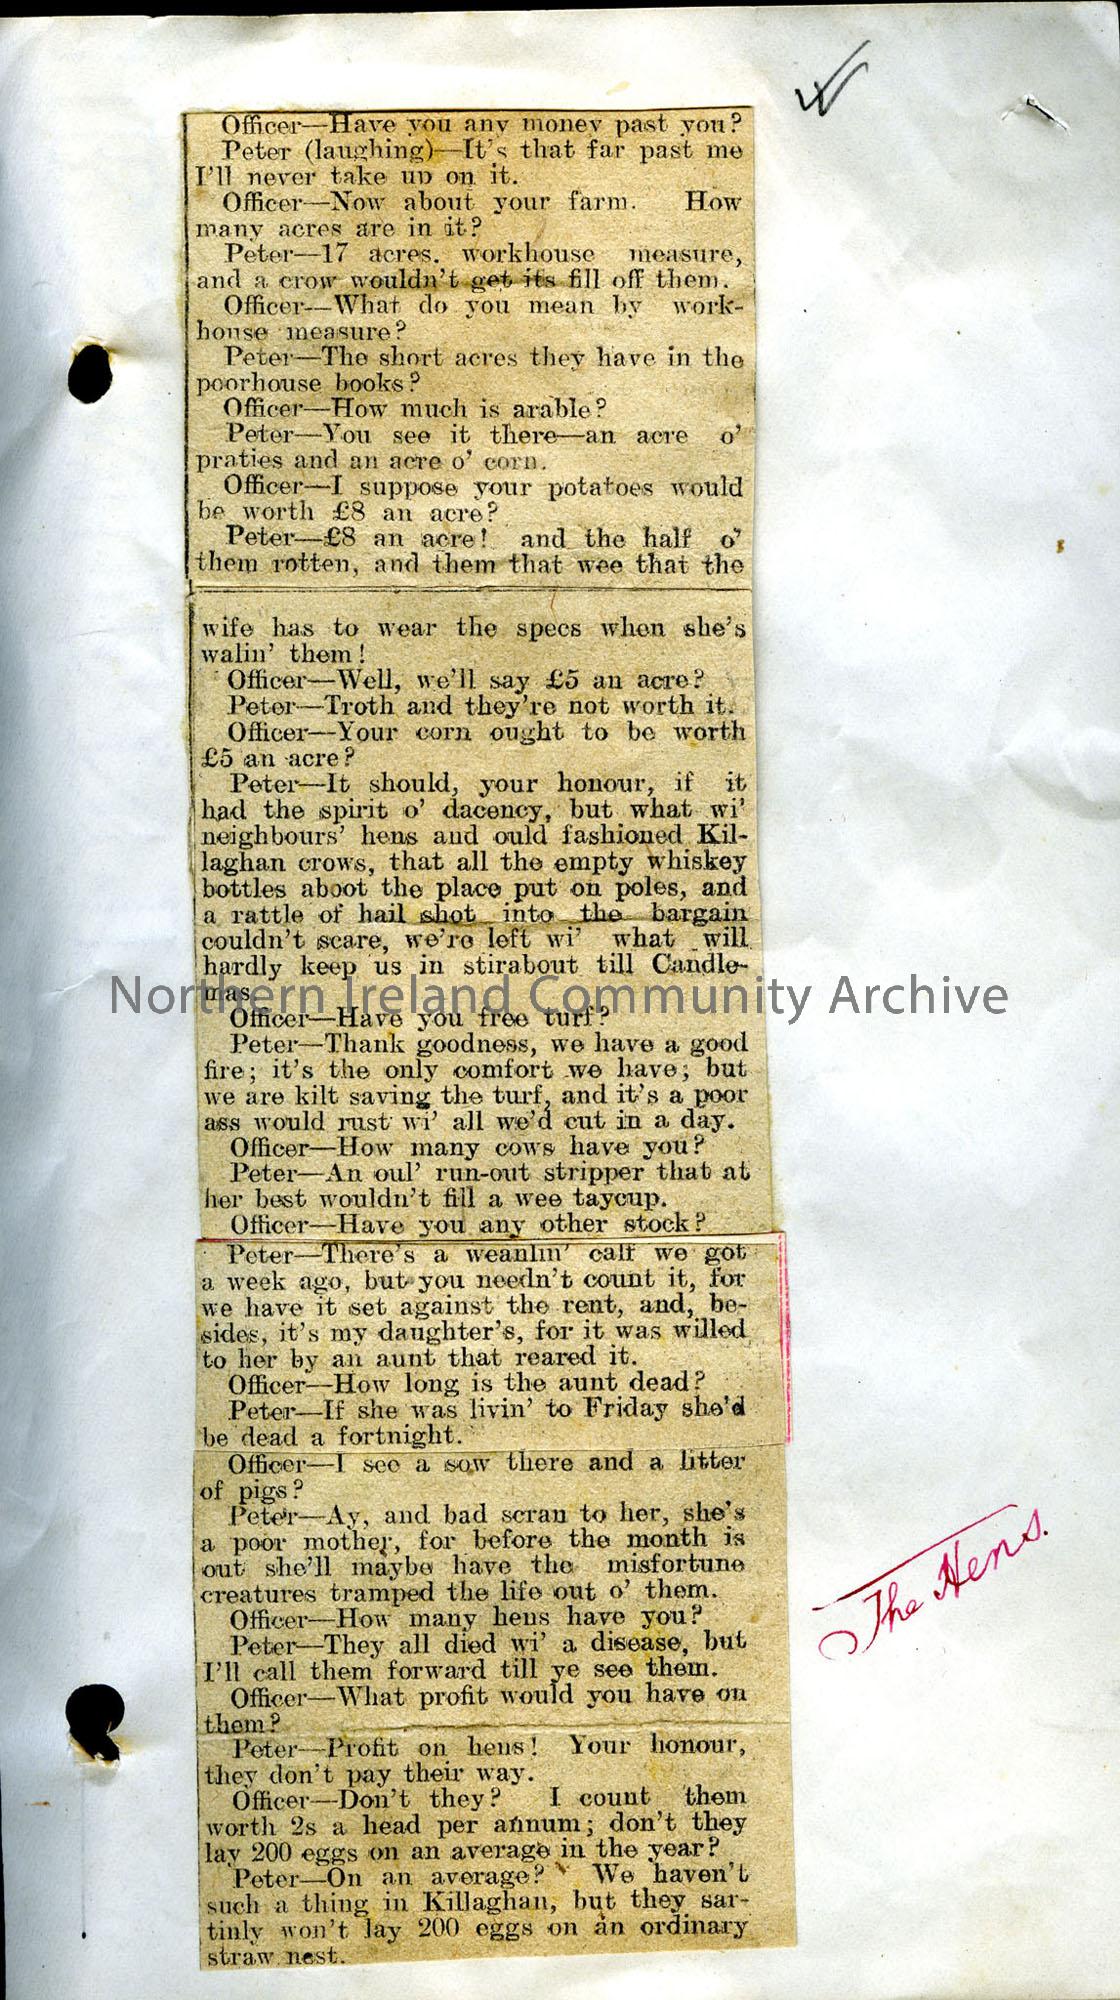 Officer—Have you any money past you?
Peter (laughing)—It's that far past me
I'll never take up on it.
Officer—Now about your farm. How
many acres are in it?
Peter—17 acres. workhouse measure,
and a crow wouldn't get its fill off them.
Officer—What do you mean by work-
house measure?
Peter—The short acres they have in the
poorhouse books?
Officer—How much is arable?
Peter—You see it there—an acre o'
praties and an acre o' corn.
Officer—I suppose your potatoes would
be worth £8 an acre?
Peter—£8 an acre! and the half o'
them rotten, and them that wee that the
wife has to wear the specs when she's
walin' them!
Officer—Well, we'll say £5 an acre?
Peter—Troth and they're not worth it.
Officer—Your corn ought to be worth
£5 an acre?
Peter—It should, your honour, if it
had the spirit o' dacency, but what wi'
neighbours' hens and ould fashioned Kil-
laghan crows, that all the empty whiskey
bottles aboot the place put on poles, and
a rattle of hail shot into the bargain
couldn't scare, we're left wi' what will
hardly keep us in stirabout till Candle-
mas
Northern Ireland Community Archive
Officer—Have you free turf?
Peter—Thank goodness, we have a good
fire; it's the only comfort we have; but
we are kilt saving the turf, and it's a poor
ass would rust wi' all we'd cut in a day.
Officer—How many cows have you?
Peter—An oul' run-out stripper that at
her best wouldn't fill a wee taycup.
Officer—Have you any other stock?
Peter—There's a weanlin' calf we got
a week ago, but you needn't count it, for
we have it set against the rent, and, be-
sides, it's my daughter's, for it was willed
to her by an aunt that reared it.
Officer—How long is the aunt dead?
Peter—If she was livin' to Friday she'd
be dead a fortnight.
Officer—I see a sow there and a litter
of pigs?
Peter—Ay, and bad scran to her, she's
a poor mother, for before the month is
out she'll maybe have the misfortune
creatures tramped the life out o' them.
Officer—How many hens have you?
Peter—They all died wi' a disease, but
I'll call them forward till ye see them.
The Hens.
Officer—What profit would you have on
them?
Peter—Profit on hens! Your honour,
they don't pay their way.
Officer—Don't they? I count them
worth 2s a head per annum; don't they
lay 200 eggs on an average in the year?
Peter—On an average? We haven't
such a thing in Killaghan, but they sar-
tinly won't lay 200 eggs on an ordinary
straw nest.